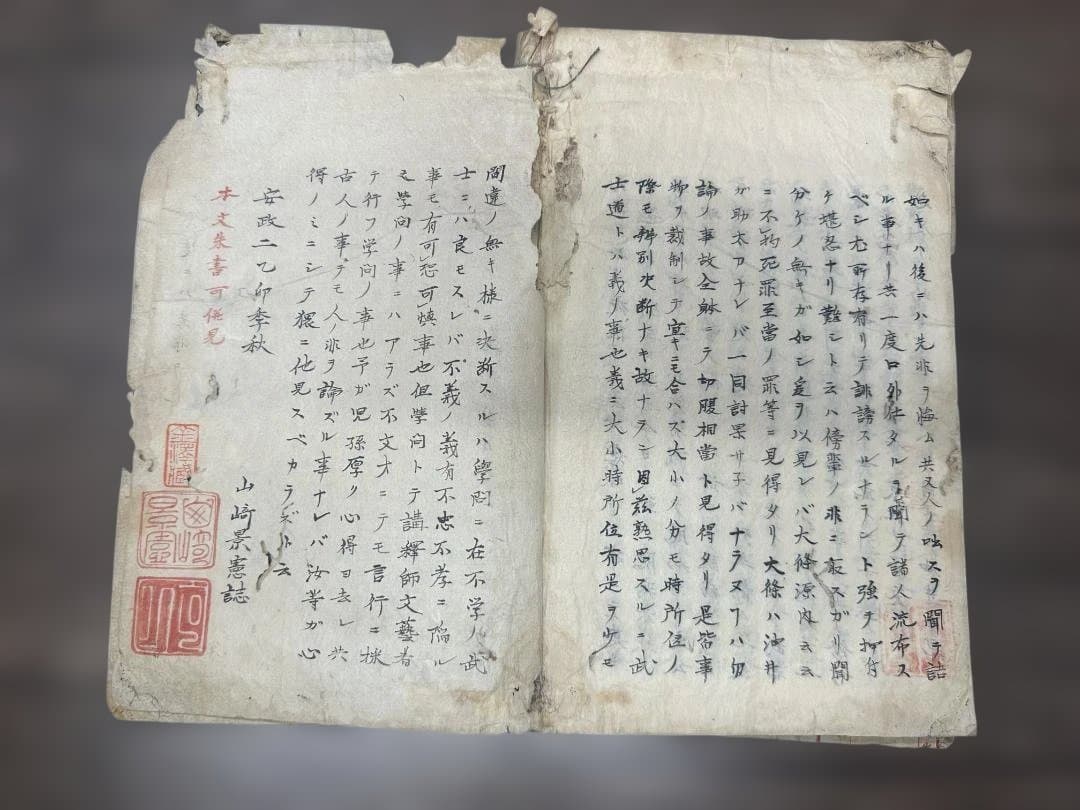 如キハ後ニハ先非ヲ悔ム共又人ノ咄スヲ聞テ詰
ル事ナリ共一度口外仕タルヲ聞テ諸人流布ス
ベシ尤所存有リテ誹謗スルナラント強テ押付
ケ堪忍ナリ難シト云ハ傍輩ノ非ニ取スガリ聞
分ケノ無キガ如シ是ヲ以見レバ大篠源内云云
ニ不拘死罪至當ノ罪等ニ見得タリ大篠ハ油井
ガ助太刀ナレバ一同討果サ子バナラヌヿハ勿
論ノ事故全躰ニテ切腹相當ト見得タリ是皆事
物ヲ裁制シテ寔キニモ合ハズ大小ノ分モ時所位ノ
際モ辨別决断ナキ故ナラン因茲熟思スルニ武
士道トハ義ノ事也義ニ大小時所位有是ヲ少モ
間違ノ無キ様ニ决断スルハ學問ニ在不学ノ武
士ニハ良モスレバ不義ノ義有不忠不孝ニ陥ル
事モ有可恐可慎事也但學問トテ講釋師文藝者
ノ學問ノ事ニハアラズ不文才ニテモ言行ニ拠
テ行フ学問ノ事也予ガ児孫厚ク心得ヨ去レ共
古人ノ事ヲモ人ノ非ヲ論ズル事ナレバ汝等ガ心
得ノミニシテ猥ニ他見スベカラズト云
安政二乙卯季秋
山﨑景憲誌
本文朱書可他見